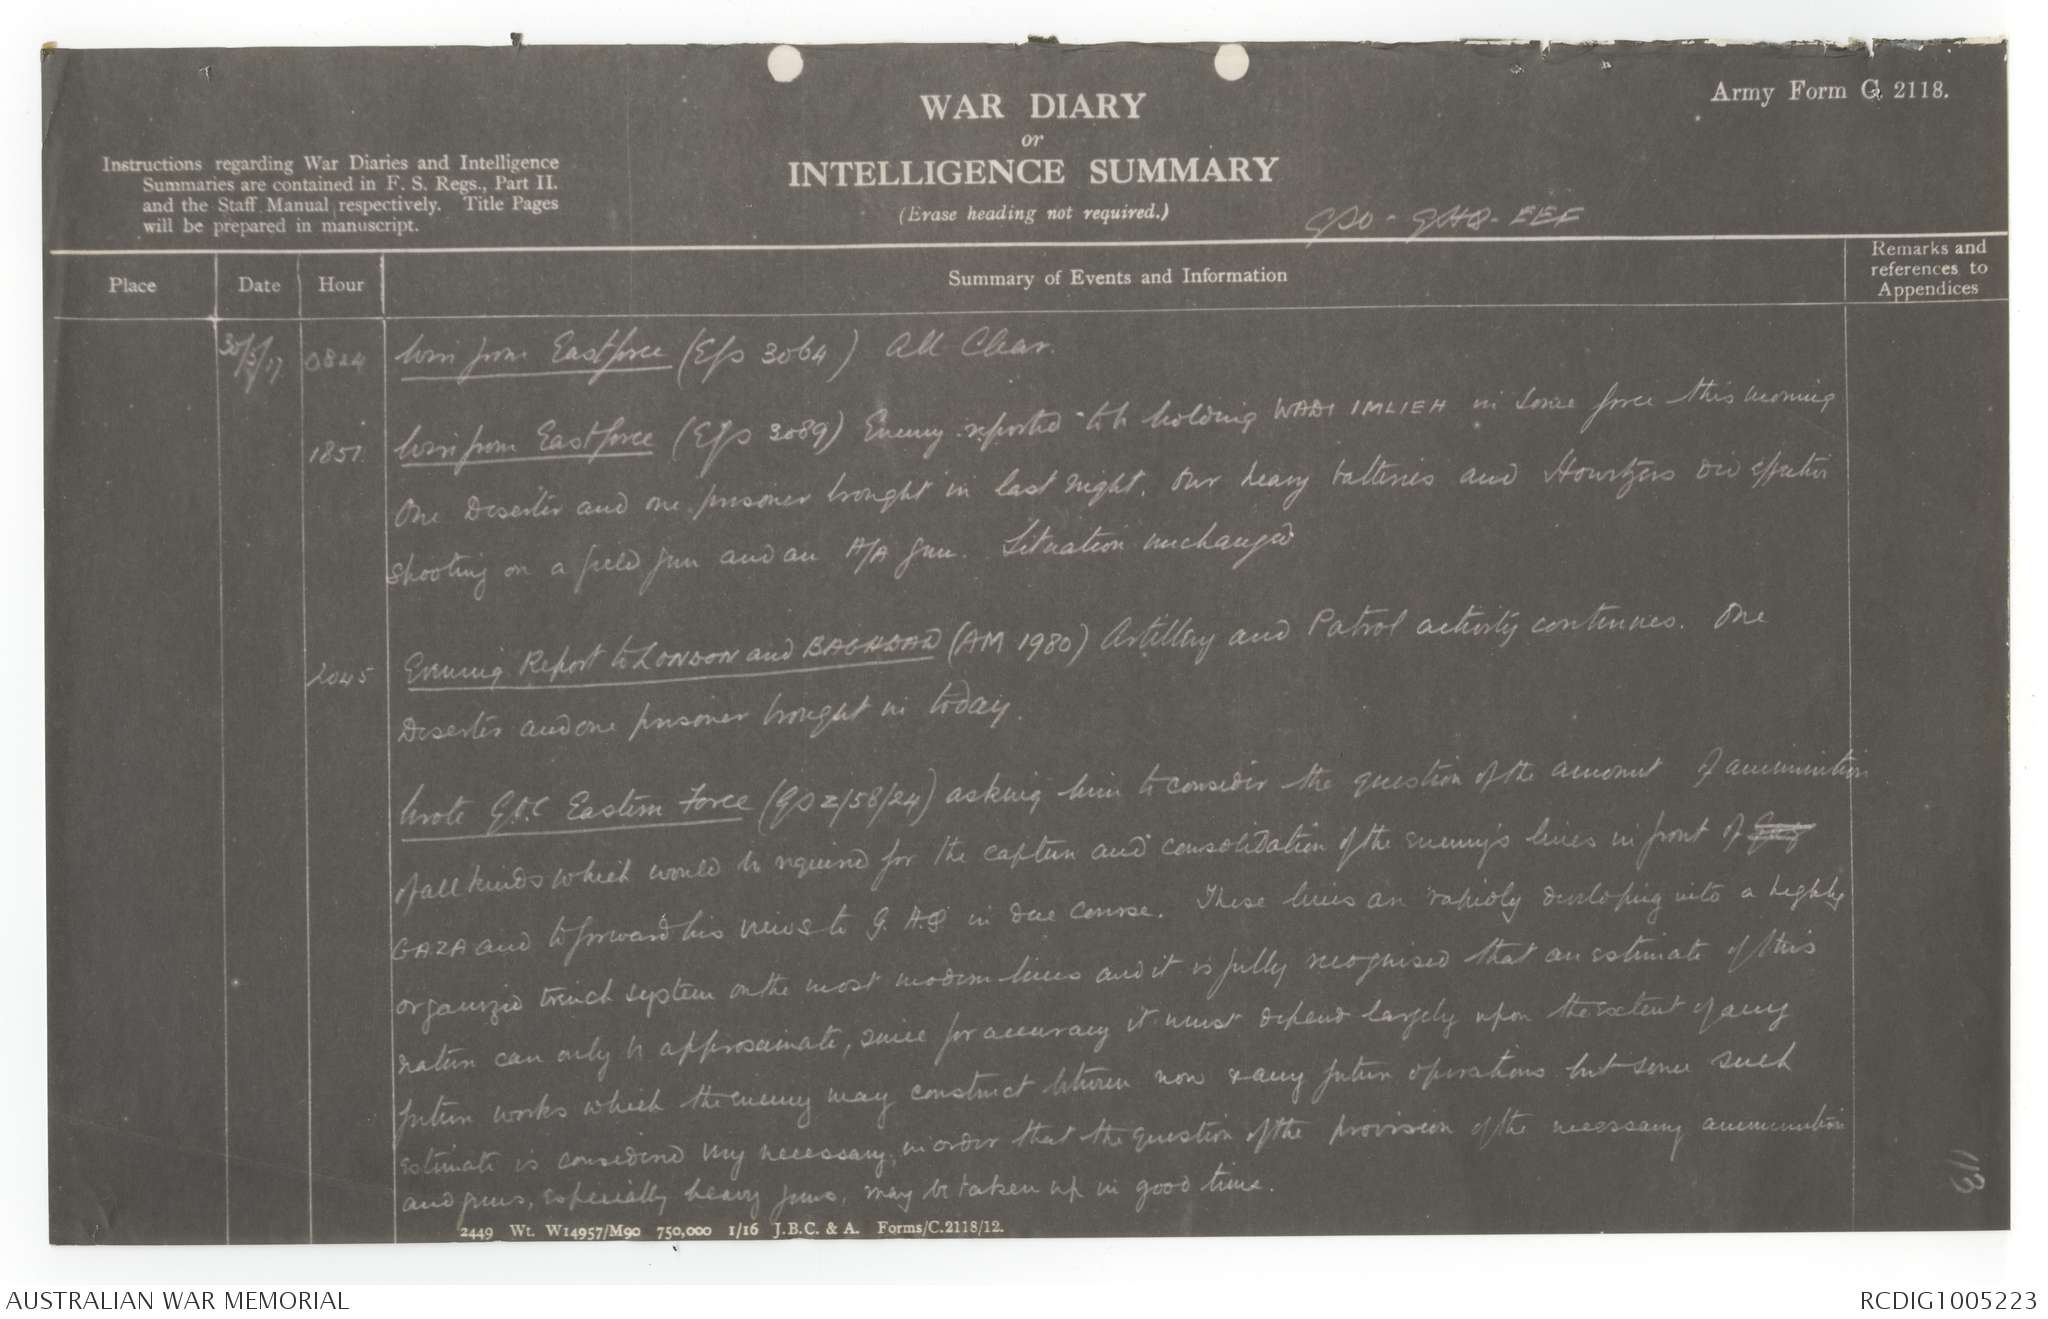 WAR DIARY
or
INTELLIGENCE SUMMARY
(Erase heading not required.)
Army Form C. 2118.
Instructions regarding War Diaries and Intelligence
Summaries are contained in F. S. Regs., Part II.
and the Staff Manual respectively. Title Pages
will be prepared in manuscript.
GSO - GHQ - EEF
Place
Date
Hour
Summary of Events and Information
Remarks and
references to
Appendices
30/5/17 0824 Wire from Eastforce (EGs 3064) All Clear.
1851. Wire from Eastforce (EGs 3089) Enemy reported to be holding WADI IMLIEH in some force this morning
One Deserter and one prisoner brought in last night. Our heavy batteries and Howitzers did effective
shooting on a field gun and an A/A gun. Situation unchanged
2045 Evening Report to LONDON and BAGHDAD (AM 1980) Artillery and Patrol activity continues. One
Deserter and one prisoner brought in today.
Wrote G.O.C Eastern Force (GS Z/58/24) asking him to consider the question of the amount of ammunition
of all kinds which would be required for the capture and consolidation of the enemy's lines in front of
GAZA and to forward his views to G.H.Q in due course. These lines are rapidly developing into a highly
organized trench system on the most modern lines and it is fully recognised that an estimate of this
nature can only be approximate, since for accuracy it must depend largely upon the extent of any
future works which the enemy may construct between now & any future operations but some such
estimate is considered very necessary, in order that the question of the provision of the necessary ammunition
and guns, especially heavy guns, may be taken up in good time.
113
2449 Wt. W14957/M90 750,000 1/16 J.B.C. & A. Forms/C.2118/12.
AUSTRALIAN WAR MEMORIAL
RCDIG1005223